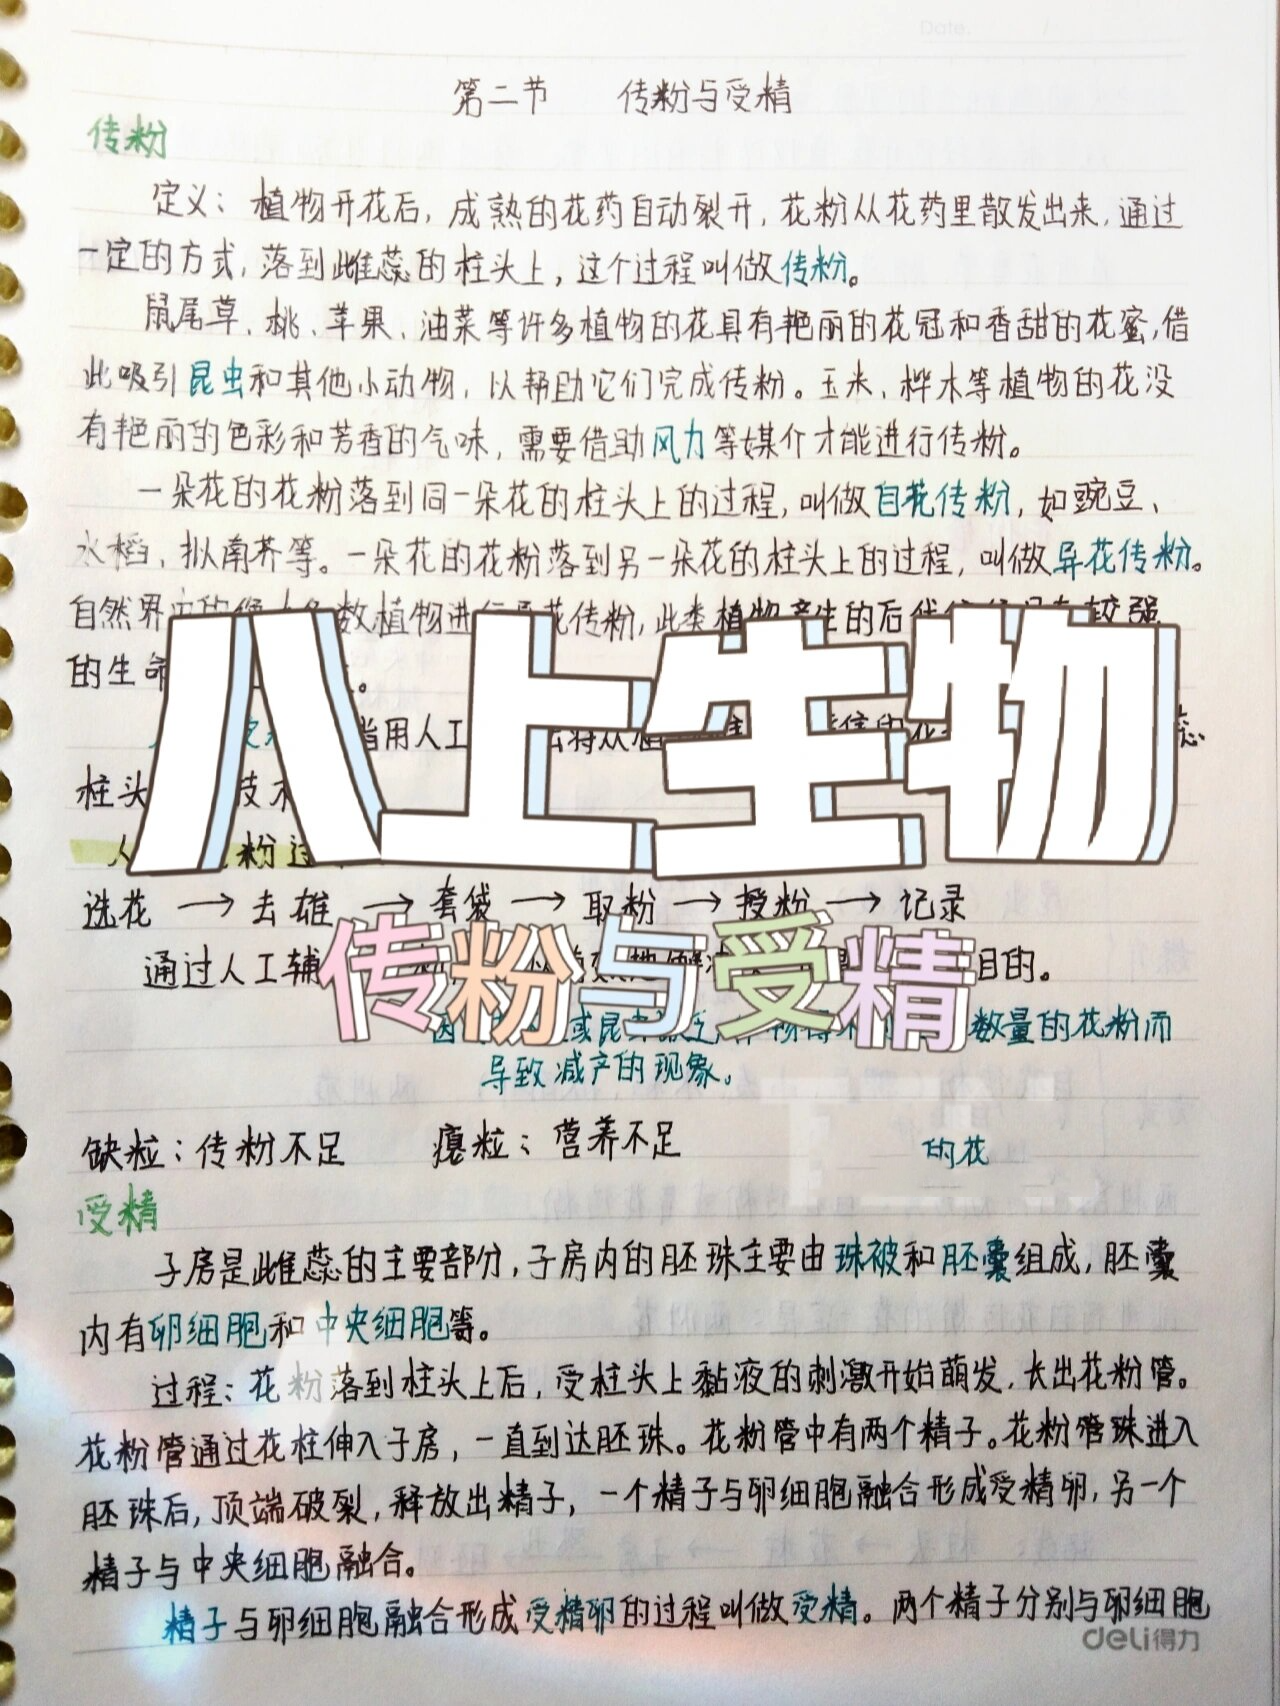 Date. /
第二节 传粉与受精
传粉
定义：植物开花后，成熟的花药自动裂开，花粉从花药里散发出来，通过
一定的方式，落到雌蕊的柱头上，这个过程叫做传粉。
鼠尾草、桃、苹果、油菜等许多植物的花具有艳丽的花冠和香甜的花蜜，借
此吸引昆虫和其他小动物，以帮助它们完成传粉。玉米、桦木等植物的花没
有艳丽的色彩和芳香的气味，需要借助风力等媒介才能进行传粉。
一朵花的花粉落到同一朵花的柱头上的过程，叫做自花传粉，如豌豆、
水稻、拟南芥等。一朵花的花粉落到另一朵花的柱头上的过程，叫做异花传粉。
自然界 数植物进 花传粉，此类植物产生的后代 较强
的生命 。
八上生物
指用人工
柱头 技术
人 粉过
选花 → 去雄 → 套袋 → 取粉 → 授粉 → 记录
通过人工辅 目的。
传粉与受精
或昆虫 数量的花粉而
导致减产的现象。
缺粒：传粉不足 瘪粒：营养不足 的花
受精
子房是雌蕊的主要部分，子房内的胚珠主要由珠被和胚囊组成，胚囊
内有卵细胞和中央细胞等。
过程：花粉落到柱头上后，受柱头上黏液的刺激开始萌发，长出花粉管。
花粉管通过花柱伸入子房，一直到达胚珠。花粉管中有两个精子。花粉管珠进入
胚珠后，顶端破裂，释放出精子，一个精子与卵细胞融合形成受精卵，另一个
精子与中央细胞融合。
精子与卵细胞融合形成受精卵的过程叫做受精。两个精子分别与卵细胞
deli得力